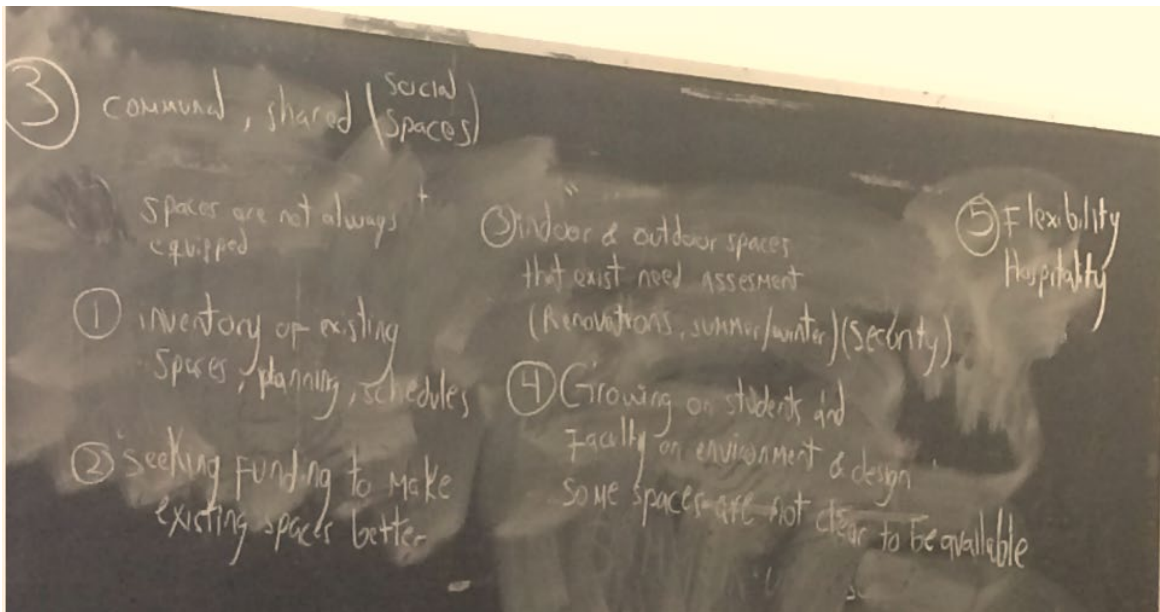 ③ communal, shared (social
spaces)
spaces are not always
equipped
① inventory of existing
spaces, planning, schedules
② seeking funding to make
existing spaces better
③ indoor & outdoor spaces
that exist need assesment
(Renovations, summer/winter) (security)
④ Growing on students and
Faculty on environment & design
some spaces are not clear to be available
⑤ Flexibility
Hospitality